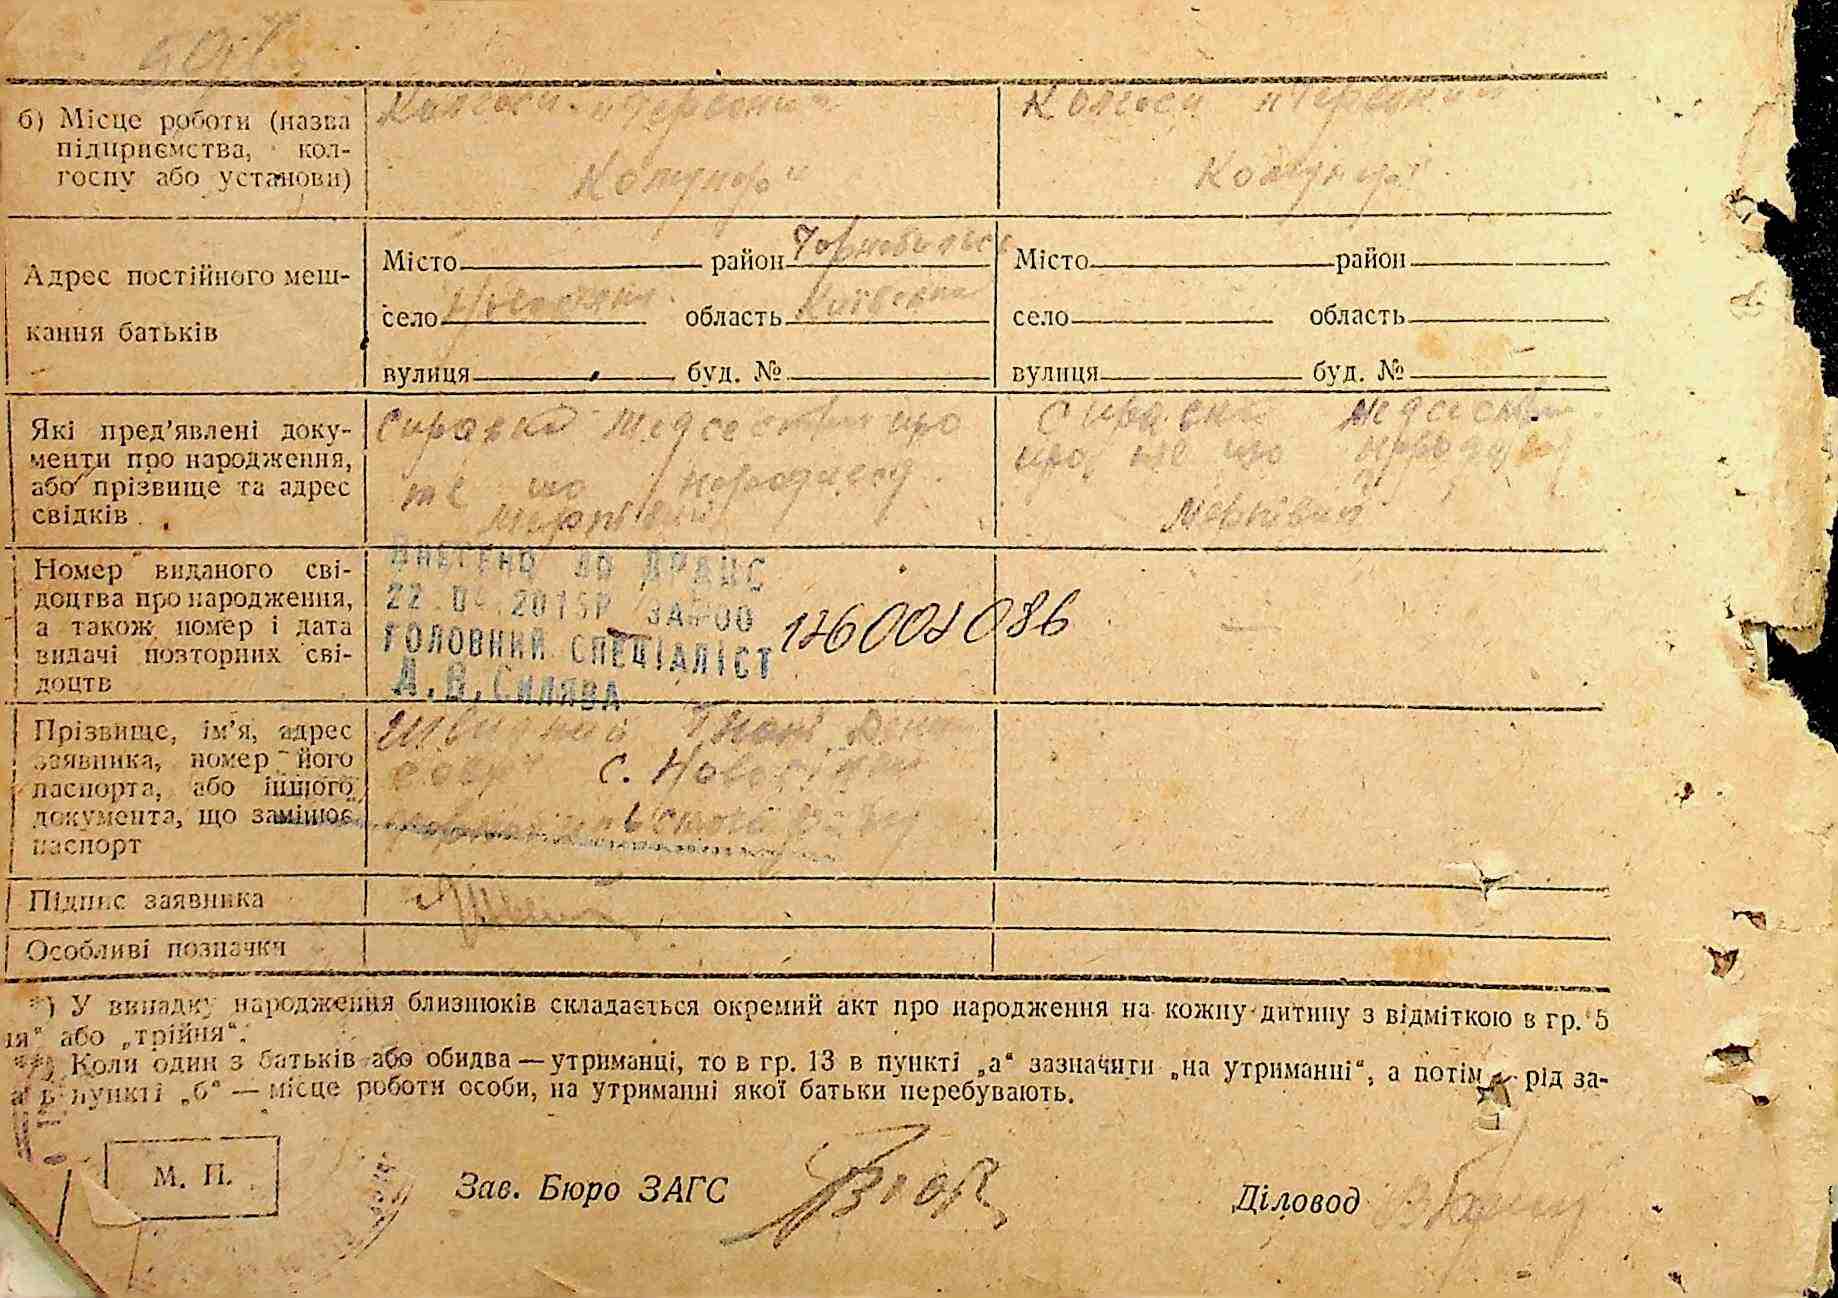 б) Місце роботи (назва
підприємства, кол-
госпу або установи)
Колгосп „Червоний
Комунар“
Колгосп „Червоний
Комунар“
Адрес постійного меш-
кання батьків
Місто район Чорнобильс
село область Київська
вулиця буд. №
Місто район
село область
вулиця буд. №
Які пред’явлені доку-
менти про народження,
або прізвище та адрес
свідків
Справка медсестри про
те що народився
мертвий
Справка медсестри
про те що народився
мертвий
Номер виданого сві-
доцтва про народження,
а також номер і дата
видачі повторних сві-
доцтв
ВНЕСЕНО ДО ДРАЦС
22 2015Р ЗА №00
126001086
ГОЛОВНИЙ СПЕЦІАЛІСТ
А.В.СИЛЯВА
Прізвище, ім’я, адрес
заявника, номер його
паспорта, або іншого
документа, що замінює
паспорт
с.
Підпис заявника
Особливі позначки
*) У випадку народження близнюків складається окремий акт про народження на кожну дитину з відміткою в гр. 5
ія“ або „трійня“.
**) Коли один з батьків або обидва — утриманці, то в гр. 13 в пункті „а“ зазначити „на утриманні“, а потім рід за-
а в пункті „б“ — місце роботи особи, на утриманні якої батьки перебувають.
М. П.
Зав. Бюро ЗАГС
Діловод